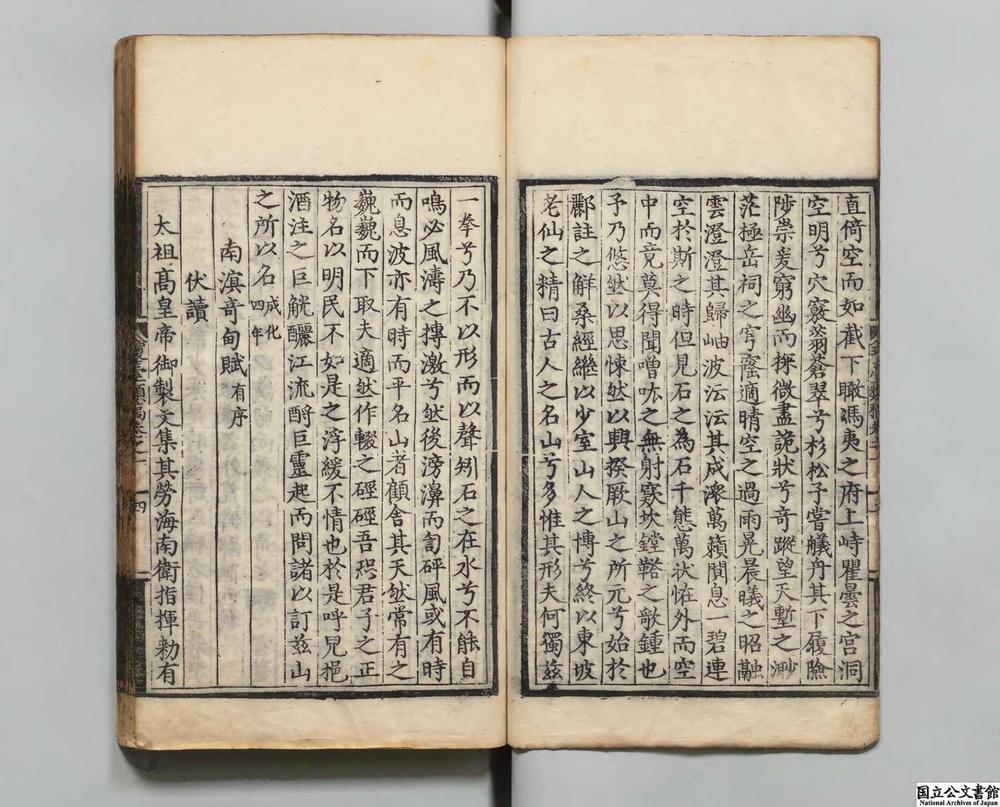 直倚空而如截下瞰馮夷之府上峙瞿曇之宮洞
空明兮穴竅蓊蒼翠兮杉松予嘗艤舟其下履險
陟崇爰窮幽而探微盡詭狀兮奇蹤望天塹之渺
茫極岳祠之穹窿適晴空之過雨晃晨曦之昭融
雲澄澄其歸岫波沄沄其成潨萬籟閴息一碧連
空於斯之時但見石之為石千態萬狀恠外而空
中而竟莫得聞噌吰之無射窾坎鏜鞳之歌鍾也
予乃悠然以思悚然以興揆厥山之所元兮始於
酈註之觧桑經繼以少室山人之博兮終以東坡
老仙之精曰古人之名山兮多惟其形夫何獨茲
一拳兮乃不以形而以聲矧石之在水兮不能自
鳴必風濤之摶激兮然後滂濞而訇砰風或有時
而息波亦有時而平名山者顧舍其天然常有之
巍巍而下取夫適然作輟之硜硜吾恐君子之正
物名以明民不如是之浮緩不情也於是呼兒挹
酒注之巨觥釃江流酹巨靈起而問諸以訂茲山
之所以名 成化四年
南滇奇甸賦 有序
伏讀
太祖髙皇帝御製文集其勞海南衛指揮勑有
四
国立公文書館
National Archives of Japan